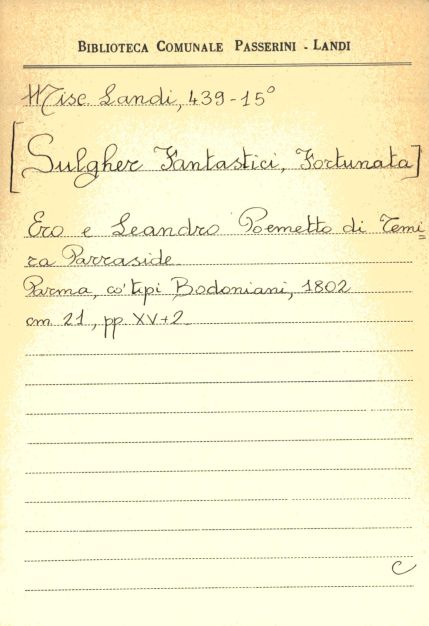 BIBLIOTECA COMUNALE PASSERINI - LANDI
Misc. Landi, 439-15°
[Sulgher Fantastici, Fortunata]
Ero e Leandro Poemetto di Temi=
ra Parraside
Parma, co' tipi Bodoniani, 1802
cm. 21, pp. XV+2.
C